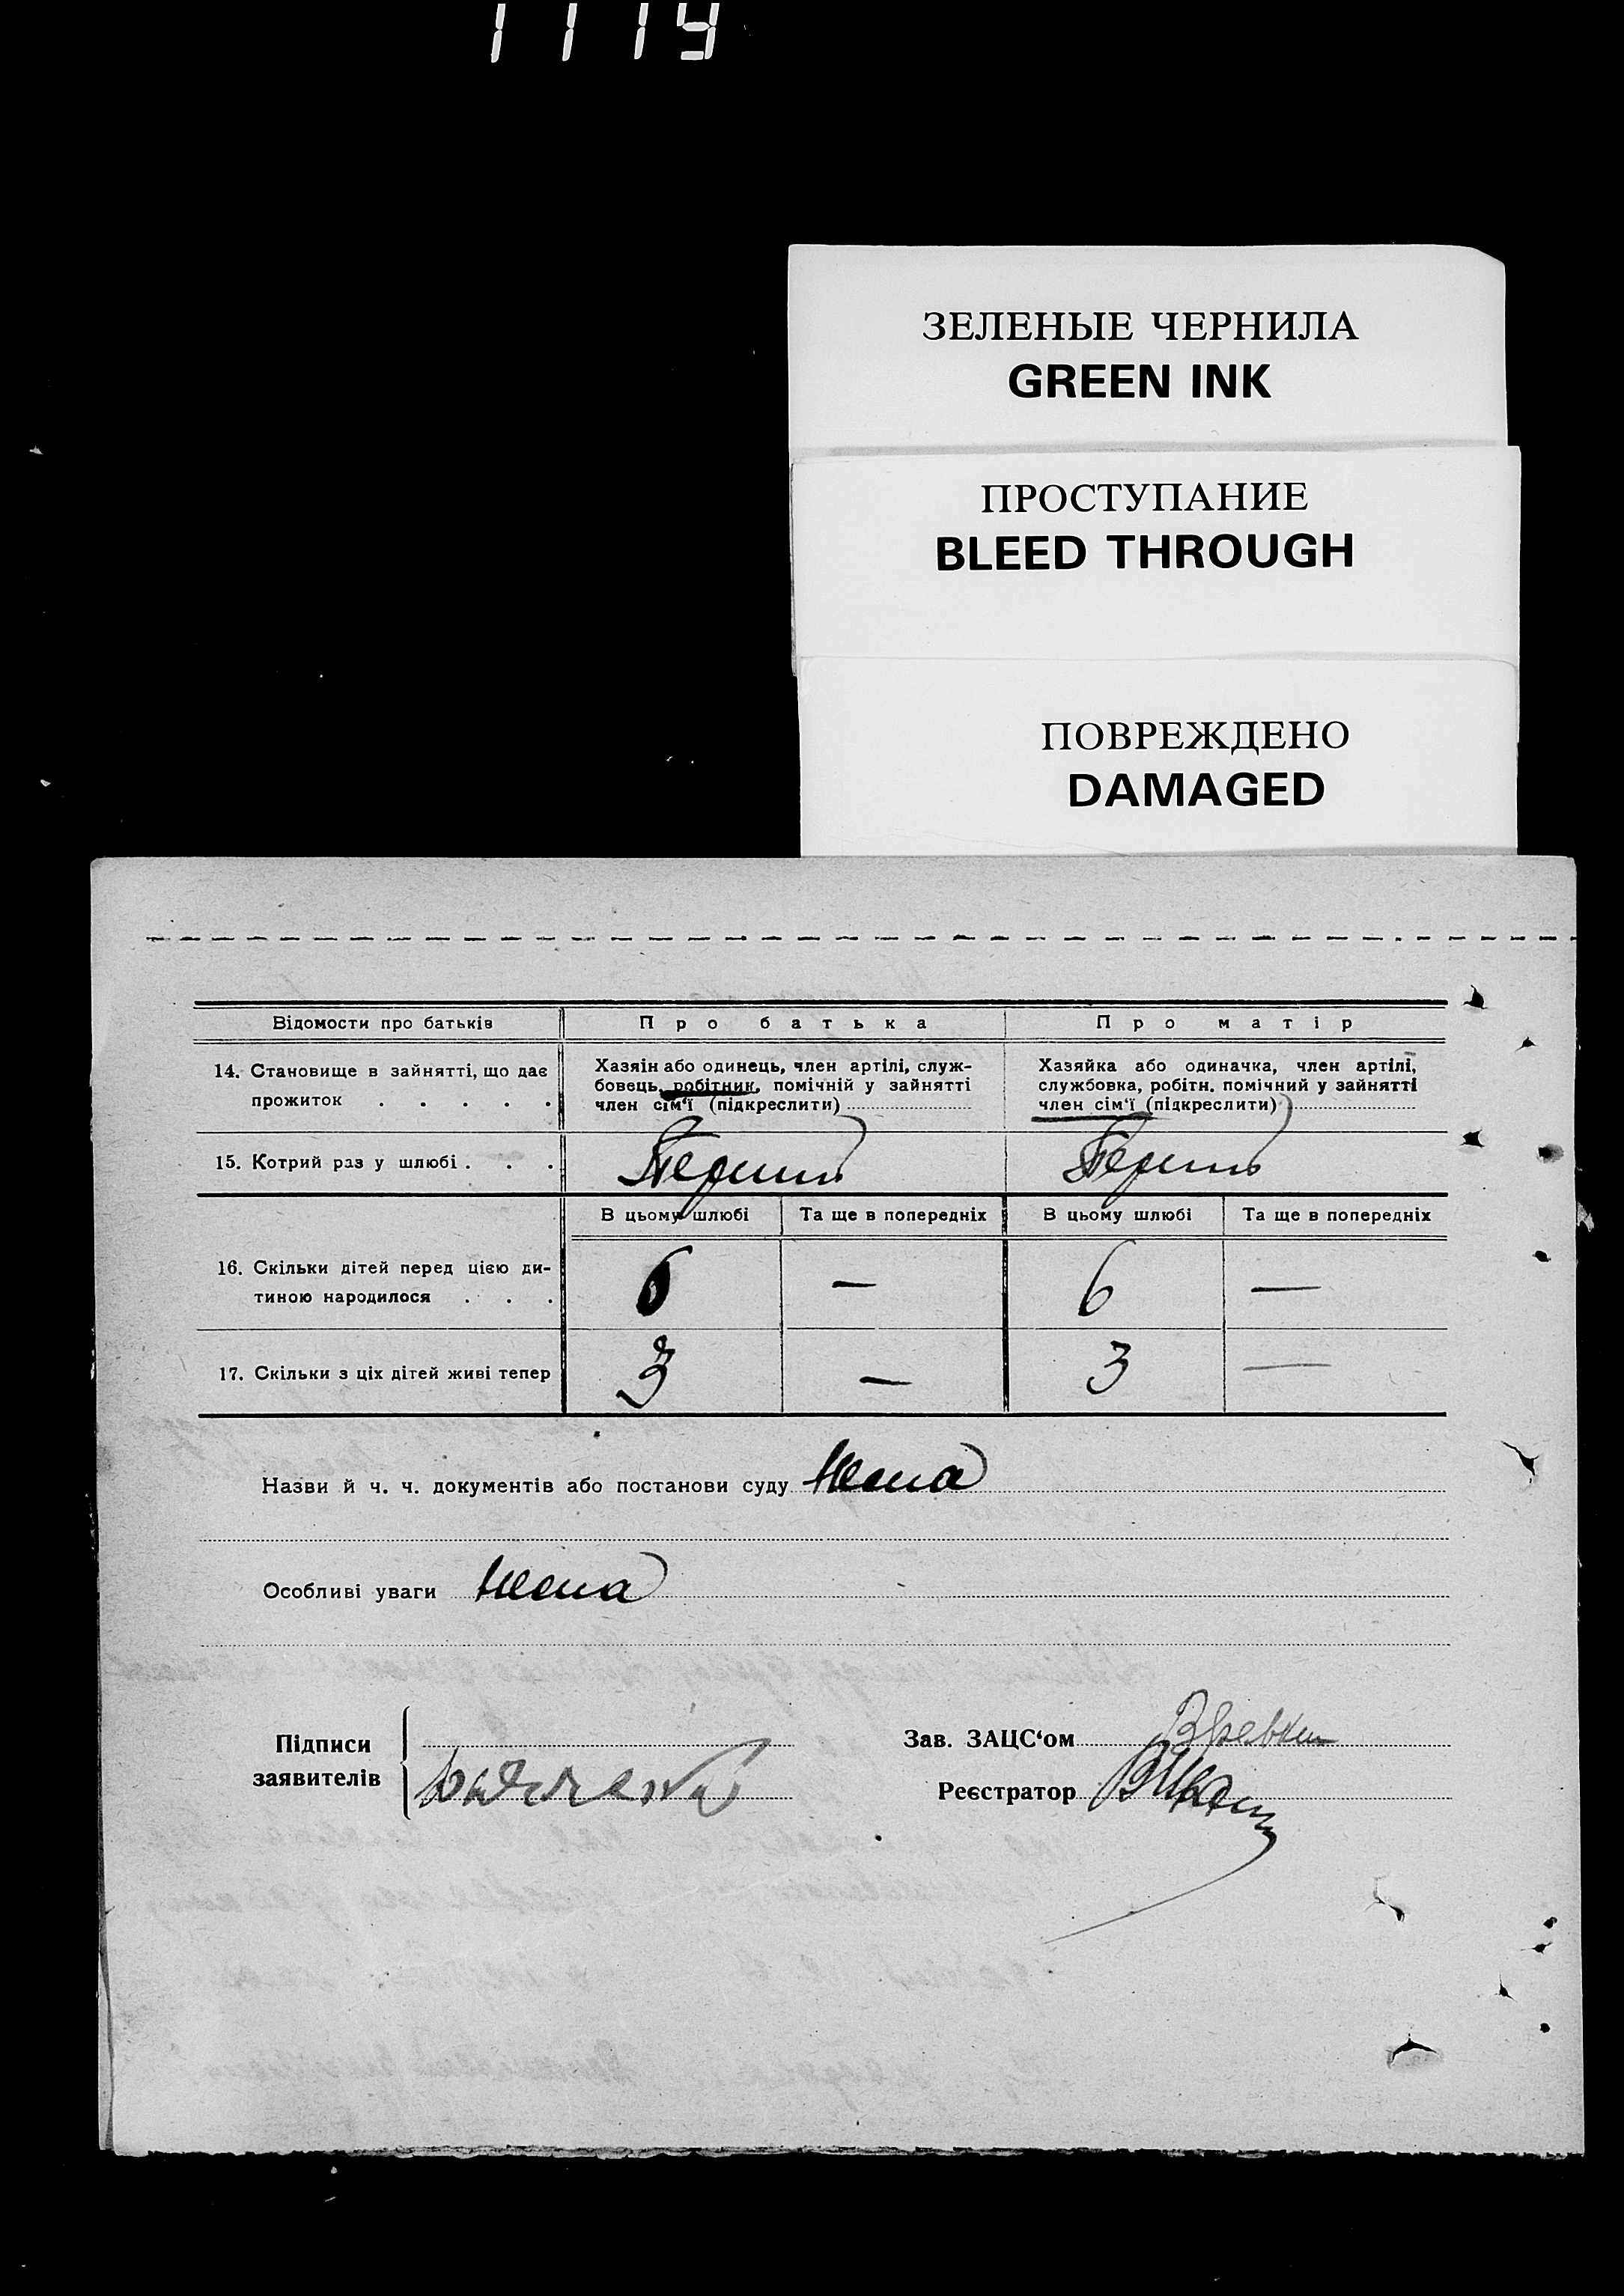 1119
ЗЕЛЕНЫЕ ЧЕРНИЛА
GREEN INK
ПРОСТУПАНИЕ
BLEED THROUGH
ПОВРЕЖДЕНО
DAMAGED
Відомости про батьків
Про батька
Про матір
14. Становище в зайнятті, що дає
прожиток . . . . .
Хазяін або одинець, член артілі, служ-
бовець, робітник, помічній у зайнятті
член сім‘ї (підкреслити)
Хазяйка або одиначка, член артілі,
службовка, робітн. помічний у зайнятті
член сім‘ї (підкреслити)
15. Котрий раз у шлюбі . . .
Перший
Перший
В цьому шлюбі
Та ще в попередніх
В цьому шлюбі
Та ще в попередніх
16. Скільки дітей перед цією ди-
тиною народилося . . .
6
—
6
—
17. Скільки з ціх дітей живі тепер
3
—
3
—
Назви й ч. ч. документів або постанови суду Нема
Особливі уваги Нема
Підписи
заявителів
Зав. ЗАЦС‘ом
Реєстратор